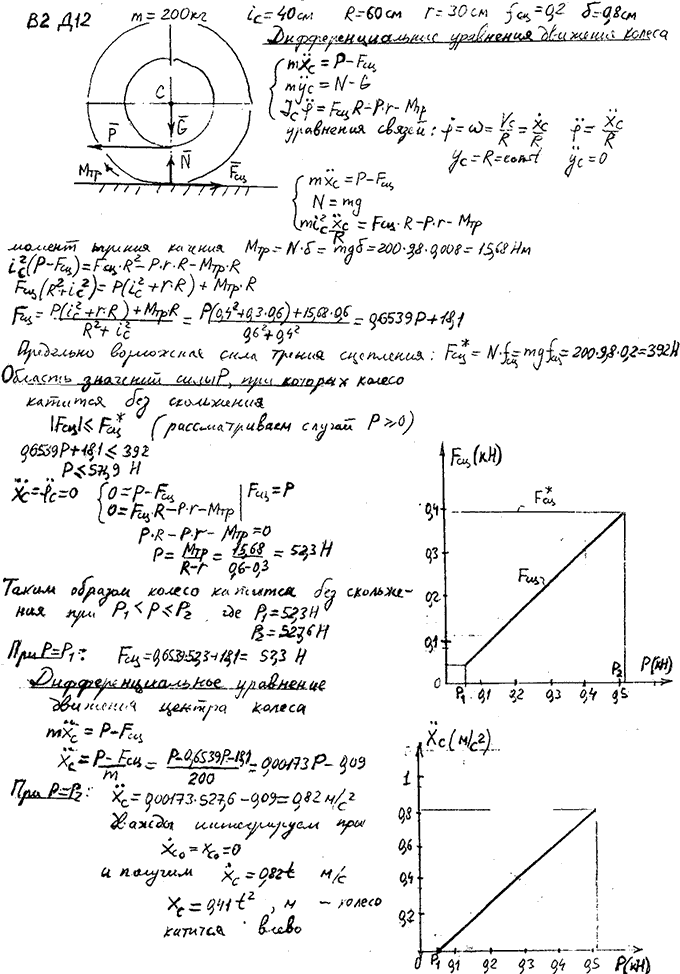 В2 Д12 m = 200кг i_c = 40см R = 60см r = 30см f_сц = 0,2 δ = 0,8см
Дифференциальные уравнения движений колеса
mẍ_c = P − F_сц
mÿ_c = N − G
J_c φ̈ = F_сц R − P·r − M_тр
уравнения связей: φ̇ = ω = V_c/R = ẋ_c/R φ̈ = ẍ_c/R
y_c = R = const ÿ_c = 0
C
G̅
P̅
N̅
M_тр
F̅_сц
mẍ_c = P − F_сц
N = mg
mi_c² ẍ_c/R = F_сц·R − P·r − M_тр
момент трения качения M_тр = N·δ = mgδ = 200·9,8·0,008 = 15,68 Нм
i_c²(P − F_сц) = F_сц·R² − P·r·R − M_тр·R
F_сц(R² + i_c²) = P(i_c² + r·R) + M_тр·R
F_сц = (P(i_c² + r·R) + M_тр R)/(R² + i_c²) = (P(0,4² + 0,3·0,6) + 15,68·0,6)/(0,6² + 0,4²) = 0,6539P + 18,1
Предельно возможная сила трения сцепления: F_сц* = N·f_сц = mg f_сц = 200·9,8·0,2 = 392Н
Область значений силы P, при которых колесо
катится без скольжения
|F_сц| ≤ F_сц* (рассматриваем случай P ≥ 0)
0,6539P + 18,1 ≤ 392
P ≤ 57,9 Н
ẍ_c = φ̈_c = 0 0 = P − F_сц | F_сц = P
0 = F_сц·R − P·r − M_тр
P·R − P·r − M_тр = 0
P = M_тр/(R − r) = 15,68/(0,6 − 0,3) = 52,3 Н
Таким образом колесо катится без скольже-
ния при P₁ < P ≤ P₂ где P₁ = 52,3 Н
P₂ = 527,6 Н
При P = P₁: F_сц = 0,6539·52,3 + 18,1 = 52,3 Н
Дифференциальное уравнение
движения центра колеса
mẍ_c = P − F_сц
ẍ_c = (P − F_сц)/m = (P − 0,6539P − 18,1)/200 = 0,00173P − 0,09
При P = P₂: ẍ_c = 0,00173·527,6 − 0,09 = 0,82 м/с²
Дважды интегрируем при
ẋ_c₀ = x_c₀ = 0
и получим ẋ_c = 0,82t м/с
x_c = 0,41t², м – колесо
катится влево
F_сц (кН)
F_сц*
0,4
0,3
F_сц
0,2
0,1
0 P₁ 0,1 0,2 0,3 0,4 0,5 P₂ P(кН)
ẍ_c (м/с²)
1
0,8
0,6
0,4
0,2
0 P₁ 0,1 0,2 0,3 0,4 0,5 P(кН)